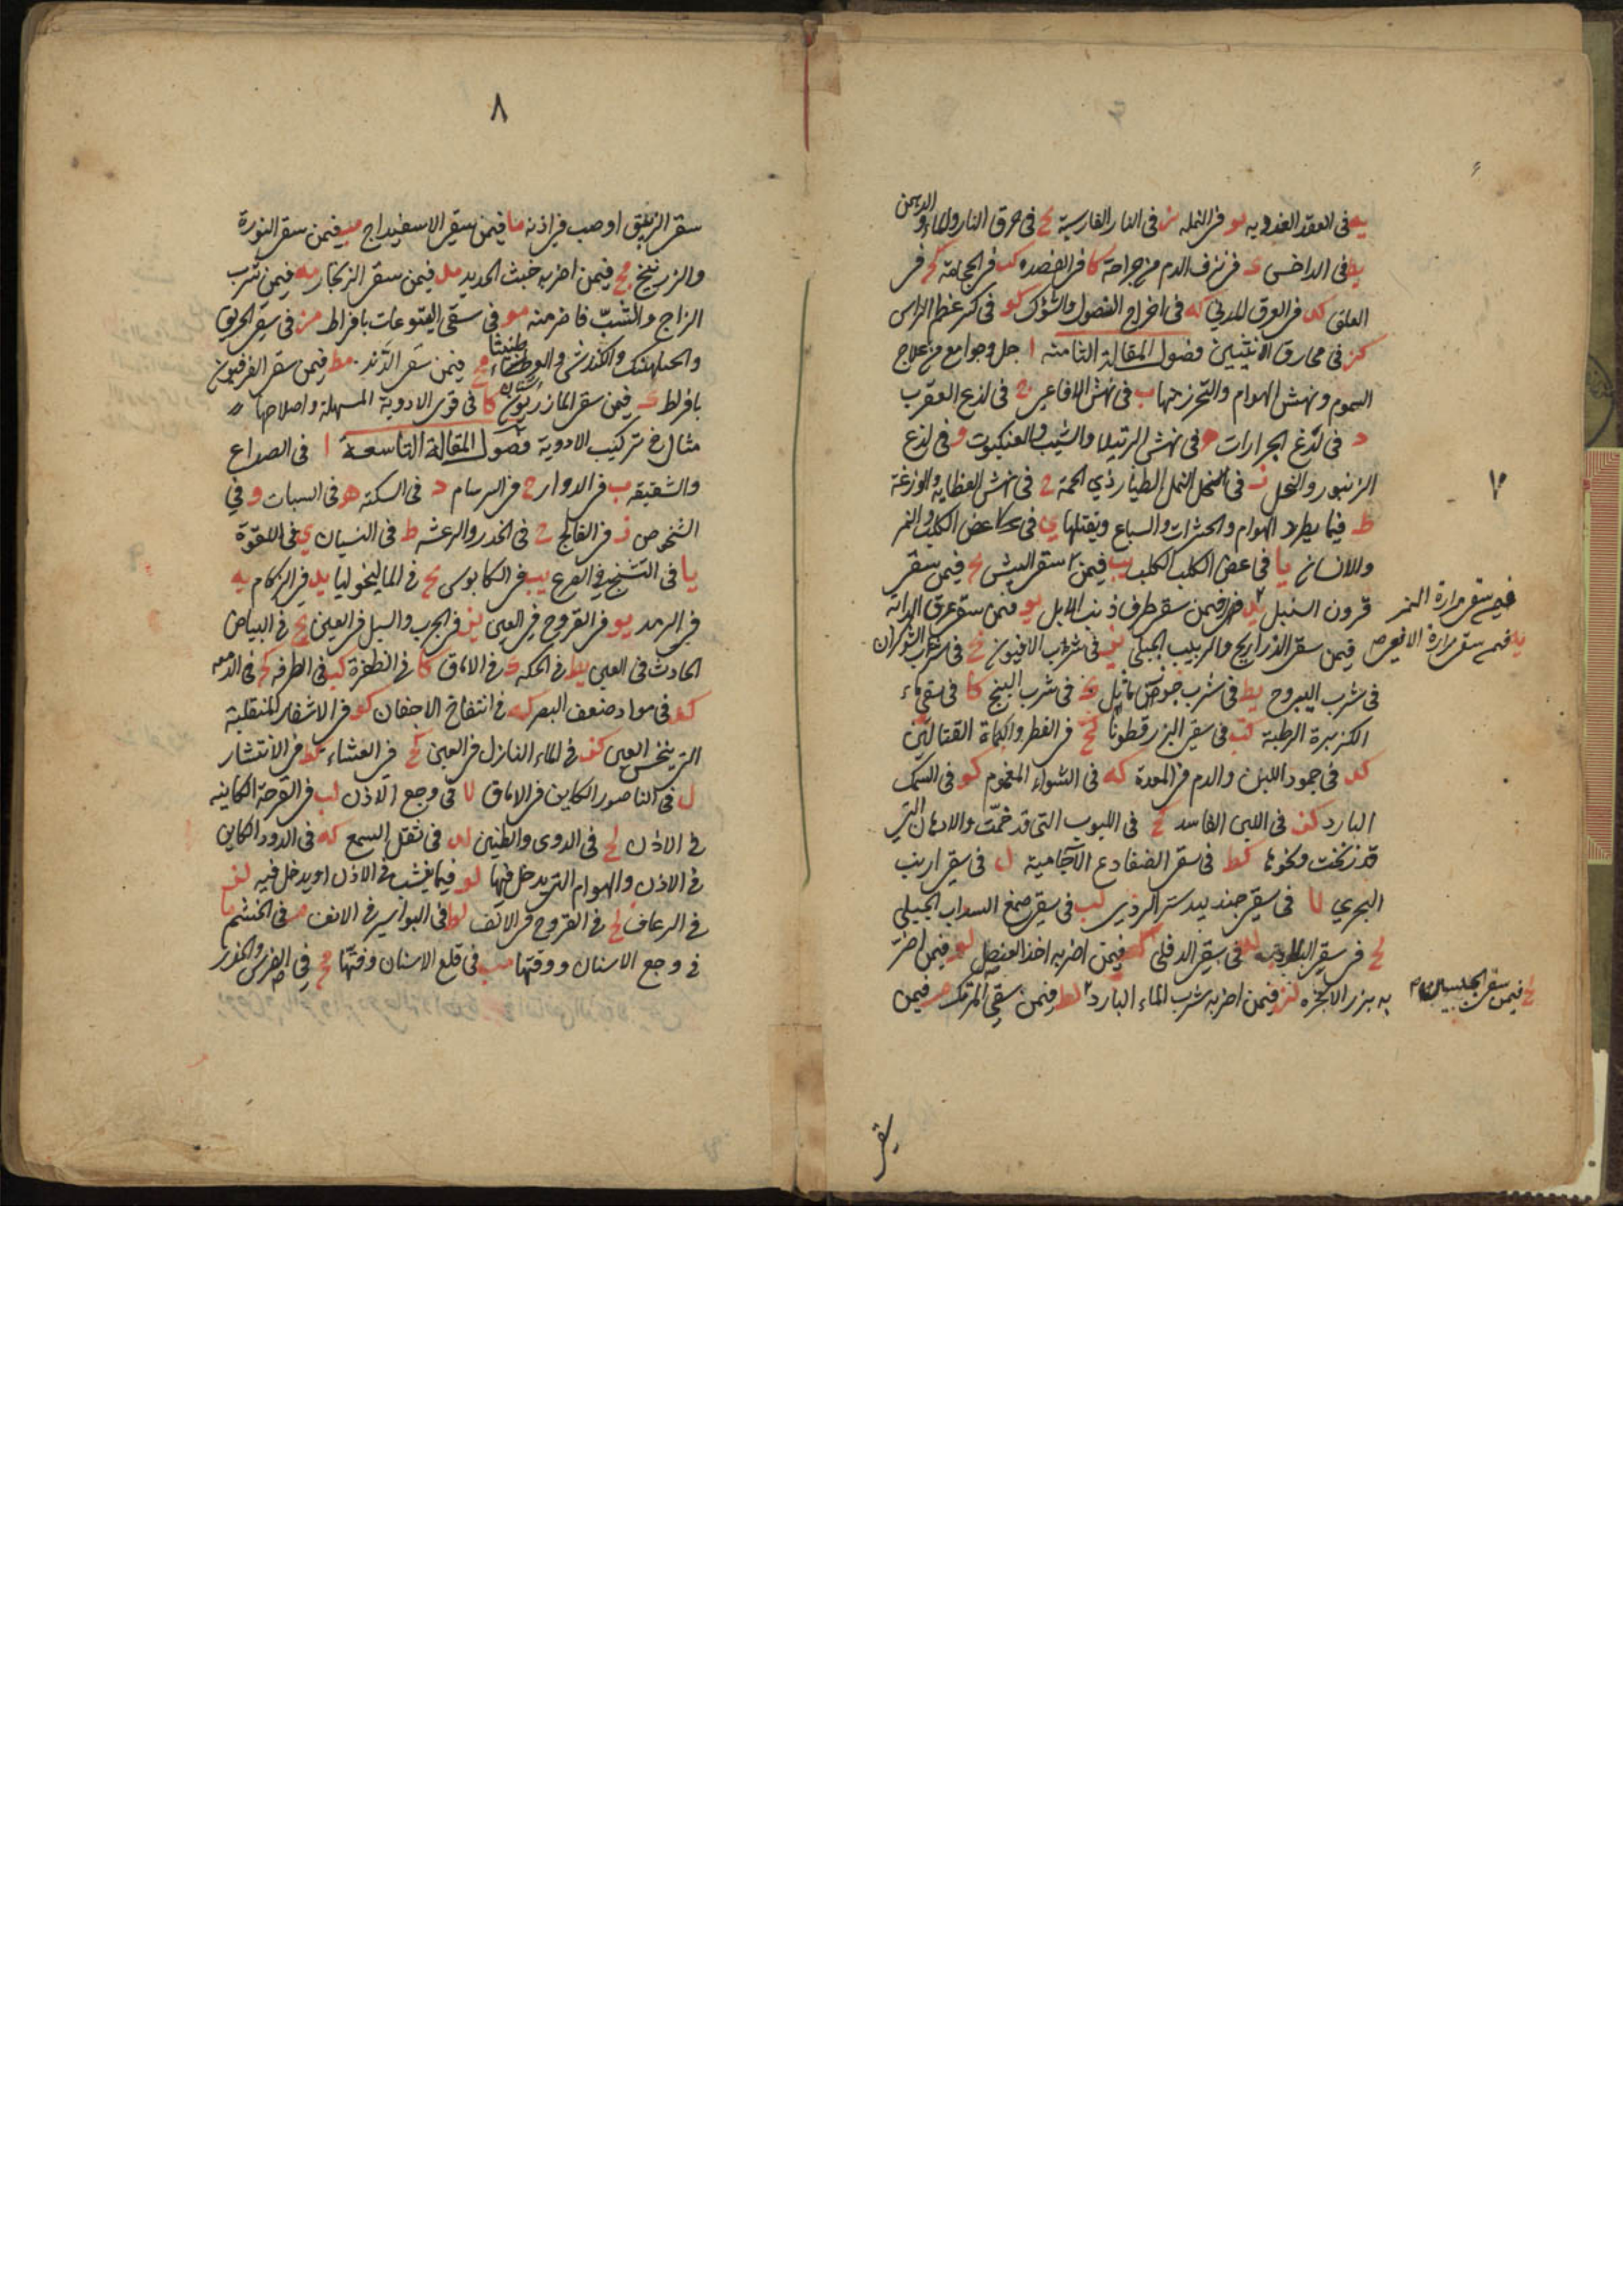 يه في العقد الغددية يو في النملة يز في النار الفارسية يح في حرق النار والماء والدهن
يط في الداخس ك في نزف الدم من جراحة كا في الفصد كب في الحجامة كج في
العلق كد في العرق المديني كه في اخراج النصول والشوك كو في كسر عظم الراس
كز في محارق الانثيين فصول المقالة الثامنه ا جمل وجوامع من علاج
السموم ونهش الهوام والتحرز منها ب في نهش الافاعي ج في لذع العقرب
د في لذغ الجرارات ه في نهش الرتيلا والشبث والعنكبوت و في لذع
الزنبور والنحل ز في النمل الطيار ذي الحمة ح في نهش العظاية والوزغة
ط فيما يطرد الهوام والحشرات والسباع ويقتلها ي في عض الكلب والنمر
والانسان يا في عض الكلب الكلب يب فيمن سقي البيش يج فيمن سقي
قرون السنبل يد فيمن سقي مرارة النمر
يه فيمن سقي مرارة الافعى
فيمن سقي طرف ذنب الايل يو فيمن سقي عرق الدابة
فيمن سقي الذراريح والزبيب الجبلي يز في شرب الافيون يح في شراب الشوكران
في شرب اليبروح يط في شرب جوز ماثل ك في شرب البنج كا في سقي ماء
الكزبرة الرطبة كب في سقي البزرقطونا كج في الفطر والكماة القتالتين
كد في جمود اللبن والدم في المعدة كه في الشواء المغموم كو في السمك
البارد كز في اللبن الفاسد كح في اللبوب التي قد خمّت والادهان التي
قد زنخت ونحوها كط في سقي الضفادع الآجامية ل في سقي ارنب
البحري لا في سقي جندبيدستر الردي لب في سقي صمغ السداب الجبلي
لج في سقي البلادر لد في سقي الدفلى له فيمن اضر به اخذ العنصل لو فيمن اضر
لح فيمن سقي الجبسين
به بزر الانجره لز فيمن اضر به شرب الماء البارد لط فيمن سقي المرتك م فيمن
سقي
٨
سقي الزيبق او صب في اذنه ما فيمن سقي الاسفيداج مب فيمن سقي النورة
والزرنيخ مج فيمن اضر به خبث الحديد مد فيمن سقي الزنجار مه فيمن شرب
الزاج والشبّ فاضر منه مو في سقي اليتوعات بافراط مز في سقي الخربق
والجبلهنك والكندش والعرطنيثا مح فيمن سقي الدند مط فيمن سقي الفرفيون
بافراط ن فيمن سقي المازريون نا في قوى الادوية المسهلة واصلاحها
مثال في تركيب الادوية فصول المقالة التاسعة ا في الصداع
والشقيقه ب في الدوار ج في السرسام د في السكتة ه في السبات و في
الشخوص ز في الفالج ح في الخدر والرعشه ط في النسيان ي في اللقوة
يا في التشنج في الصرع يب في الكابوس يج في الماليخوليا يد في الزكام يه
في الرمد يو في القروح في العين يز في الجرب والسبل في العين يح في البياض
الحادث في العين يط في الحكة ك في الاماق كا في الظفرة كب في الطرفه كج في الدمعه
كد في مواد ضعف البصر كه في انتفاخ الاجفان كو في الاشفار المنقلبة
التي ينخس العين كز في الماء النازل في العين كح في العشاء كط في الانتشار
ل في الناصور الكاين في الاماق لا في وجع الاذن لب في القرحة الكاينه
في الاذن لج في الدوى والطنين لد في ثقل السمع له في الدود الكاين
في الاذن والهوام التي يدخل فيها لو فيما ينشب في الاذن او يدخل فيه لز
في الرعاف لح في القروح في الانف لط في البواسير في الانف م في الخشم ما
في وجع الاسنان ووقتها مب في قلع الاسنان وفتّها مج في الضرس والخدر